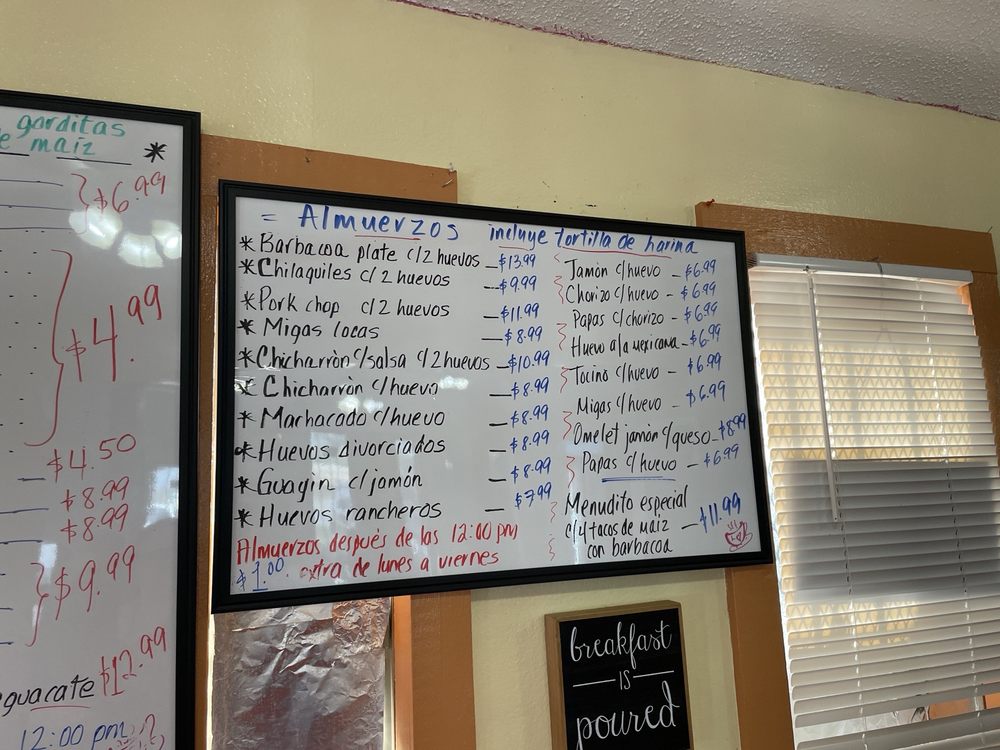 garditas
maíz
*
$6.99
$4.99
$4.50
$8.99
$8.99
$9.99
$12.99
12:00 pm
= Almuerzos incluye tortilla de harina
* Barbacoa plate c/2 huevos - $13.99
* Chilaquiles c/2 huevos - $9.99
* Pork chop c/2 huevos - $11.99
* Migas locas - $8.99
* Chicharròn c/salsa c/2 huevos - $10.99
* Chicharròn c/huevo - $8.99
* Machacado c/huevo - $8.99
* Huevos divorciados - $8.99
* Guayin c/jamón - $8.99
* Huevos rancheros - $7.99
Almuerzos después de las 12:00 pm
$1.00 extra de lunes a viernes
Jamón c/huevo - $6.99
Chorizo c/huevo - $6.99
Papas c/chorizo - $6.99
Huevo a la mexicana - $6.99
Tocino c/huevo - $6.99
Migas c/huevo - $6.99
Omelet jamón c/queso - $8.99
Papas c/huevo - $6.99
Menudito especial
c/4 tacos de maiz - $11.99
con barbacoa
breakfast
IS
poured